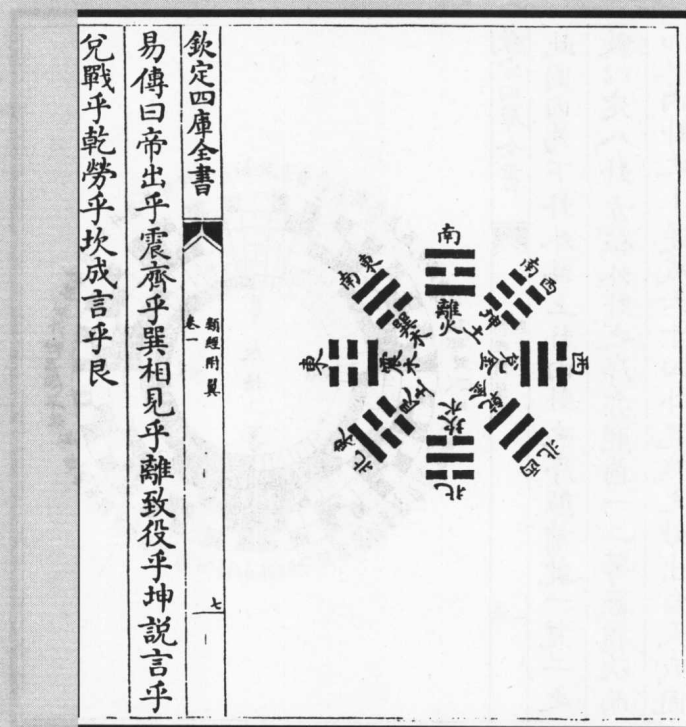 南
離火
西南
坤土
西
兌金
西北
乾金
北
坎水
東北
艮土
東
震木
東南
巽木
欽定四庫全書
類經附翼
卷一
七
易傳曰帝出乎震齊乎巽相見乎離致役乎坤説言乎
兌戰乎乾勞乎坎成言乎艮